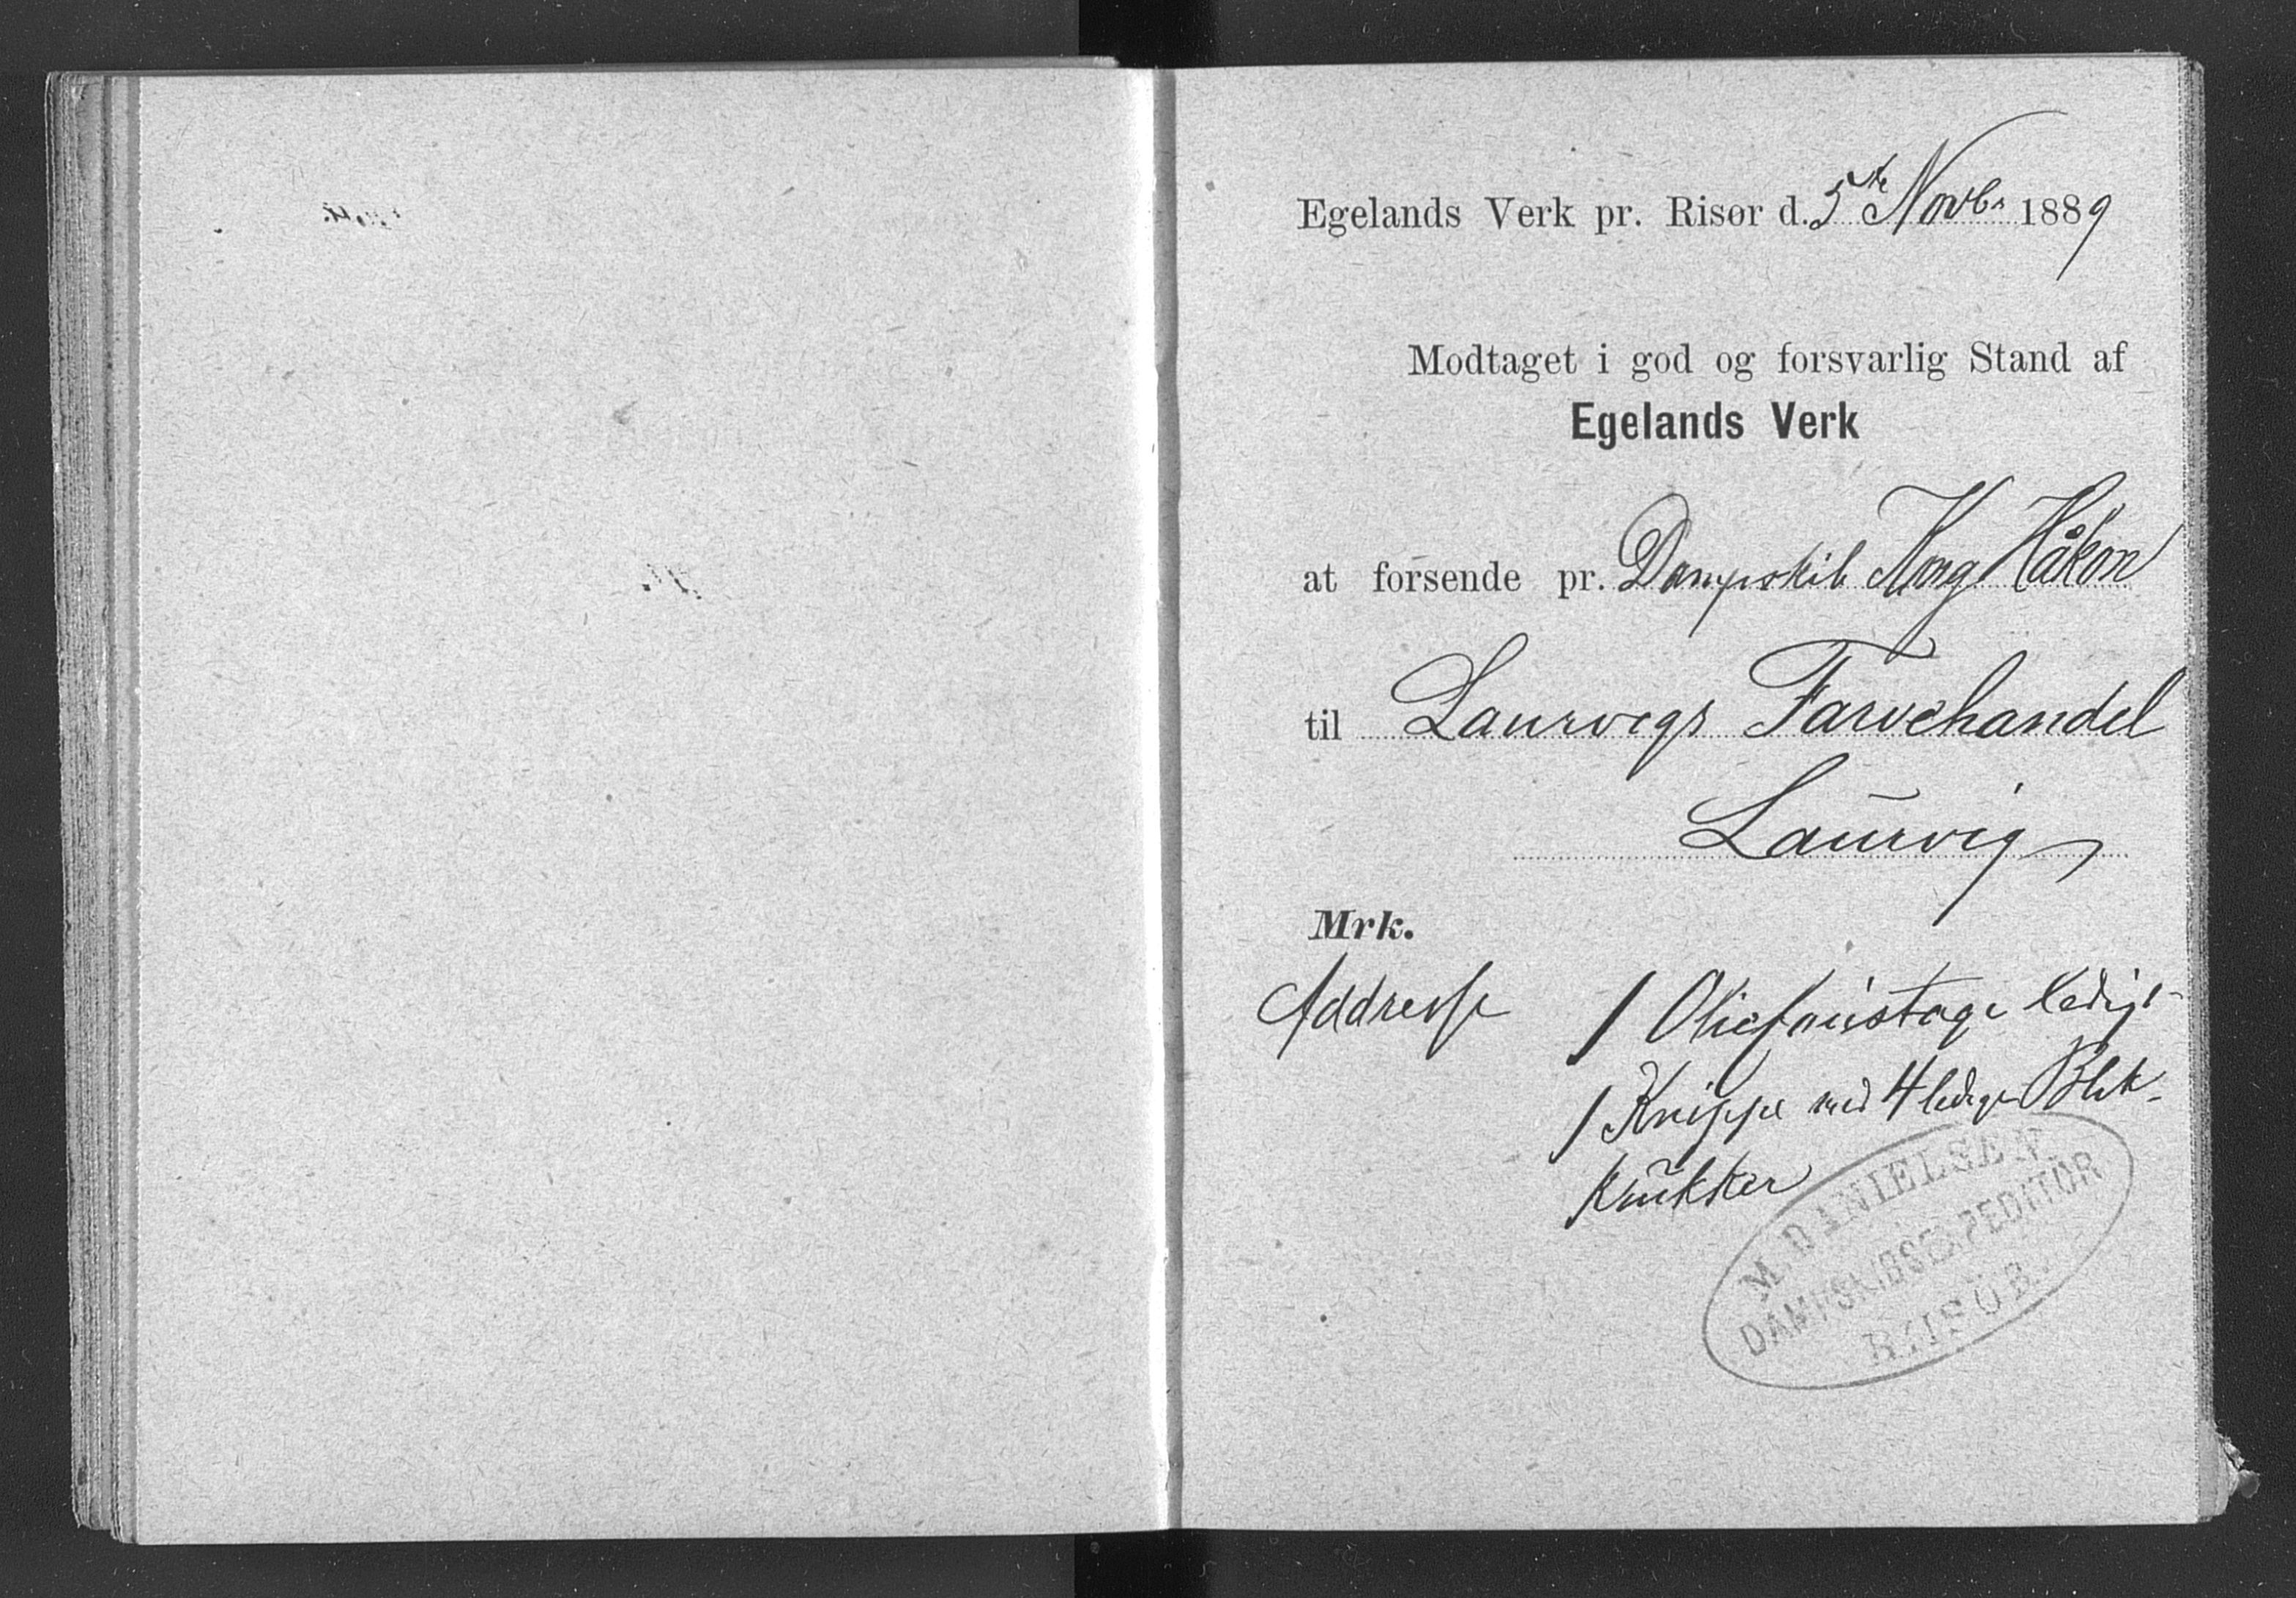 Egelands Verk pr. Risør d. 5te Novbr 1889
Modtaget i god og forsvarlig Stand af
Egelands Verk
at forsende pr. Dampskib Kong Håkon
til Laurvigs Farvehandel
Laurvig
Mrk.
Addresse 1 Oliefoustage ledigt
1 Knippe med 4 ledige Blik-
krukker
M. DANIELSEN
DAMPSKIBSEXPEDITØR
RISØR